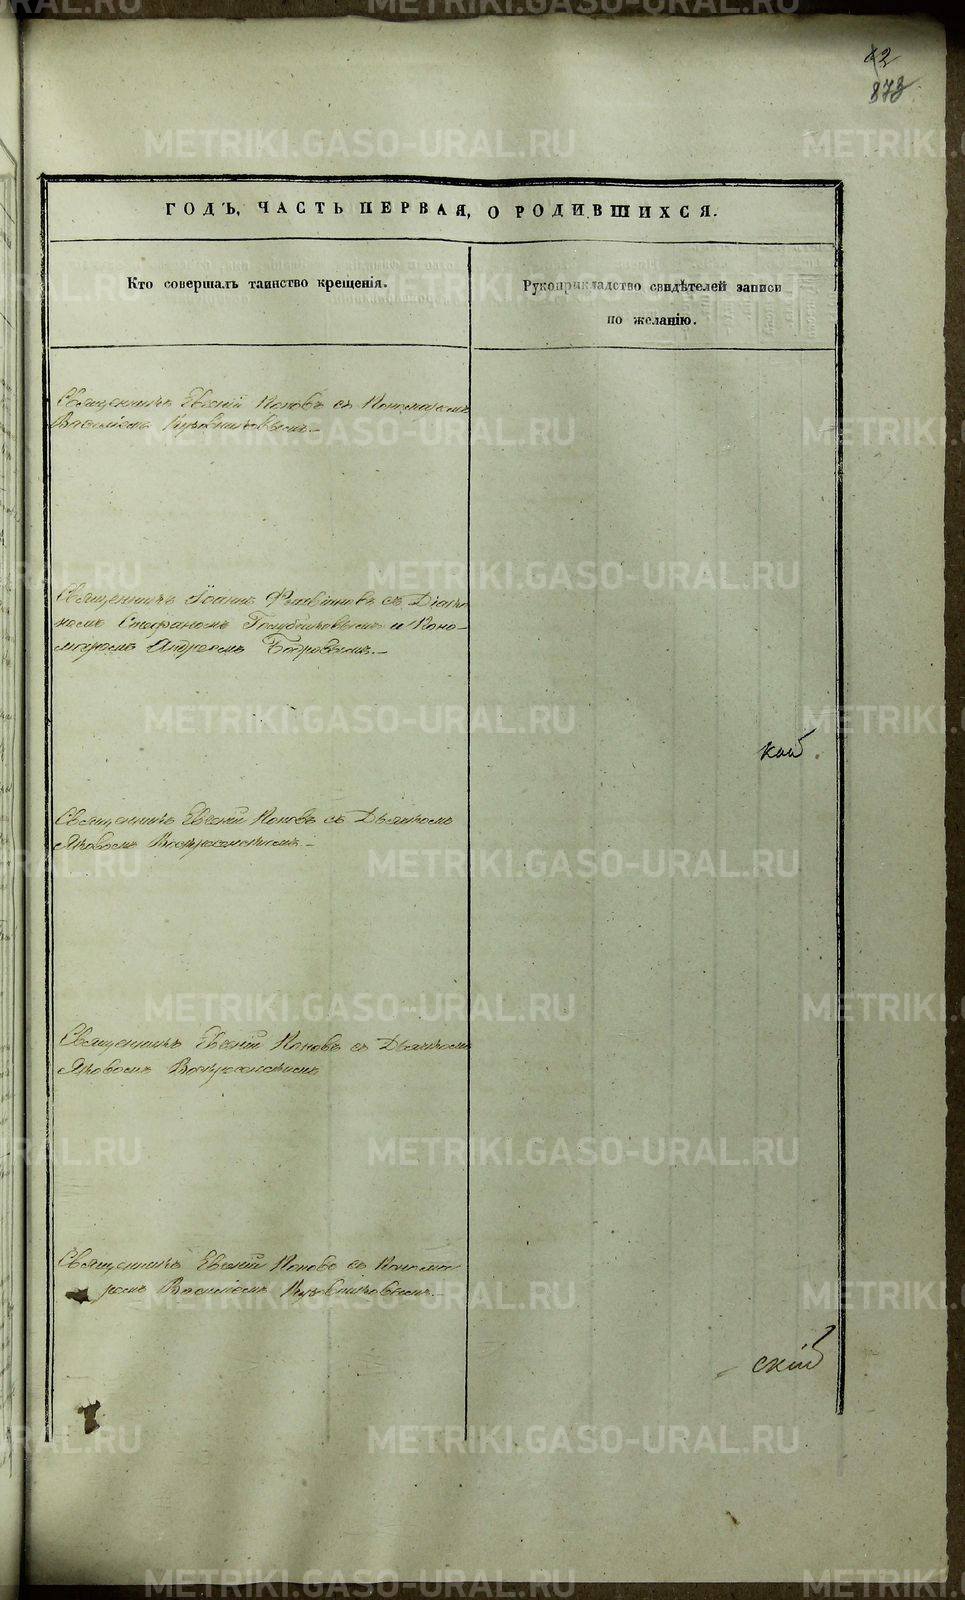 42
873
ГОДЪ, ЧАСТЬ ПЕРВАЯ, О РОДИВШИХСЯ.
Кто совершалъ таинство крещенія.
Рукоприкладство свидѣтелей записи
по желанію.
Священникъ Евгеній Поповъ съ Пономаремъ
Василіемъ
Священникъ Іоаннъ съ Діако
номъ Стефаномъ и Поно-
маремъ Андреемъ
кой
Священникъ Евгеній Поповъ съ Дьячкомъ
Яковомъ Воскресенскимъ
Священникъ Евгеній Поповъ съ Дьячкомъ
Яковомъ Воскресенскимъ
Священникъ Евгеній Поповъ съ Понома
ремъ Василіемъ
скій
METRIKI.GASO-URAL.RU